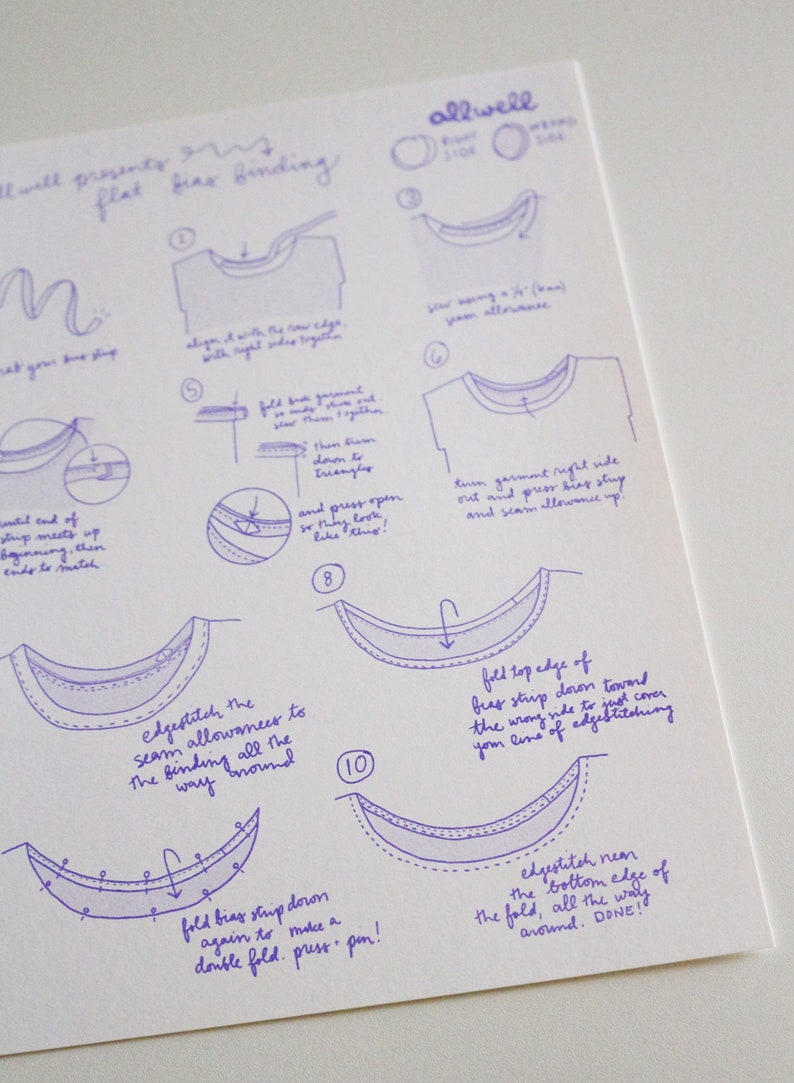 allwell
RIGHT
SIDE
WRONG
SIDE
llwell presents
flat bias binding
your bias strip
2
align it with the raw edge.
with right sides together
3
sew using a ¼" (6mm)
seam allowance
until end of
strip meets up
beginning, then
ends to match
5
fold back garment
so ends stick out.
sew them together.
then trim
down to
triangles
and press open
so they look
like this!
6
turn garment right side
out and press bias strip
and seam allowance up!
edgestitch the
seam allowances to
the binding all the
way around
8
fold top edge of
bias strip down toward
the wrong side to just cover
your line of edgestitching
fold bias strip down
again to make a
double fold. press + pin!
10
edgestitch near
the bottom edge of
the fold, all the way
around. DONE!